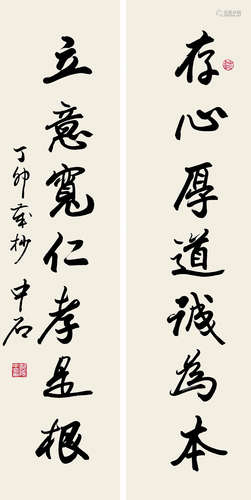 存心厚道誠為本
立意寬仁孝是根
丁卯歲杪 中石